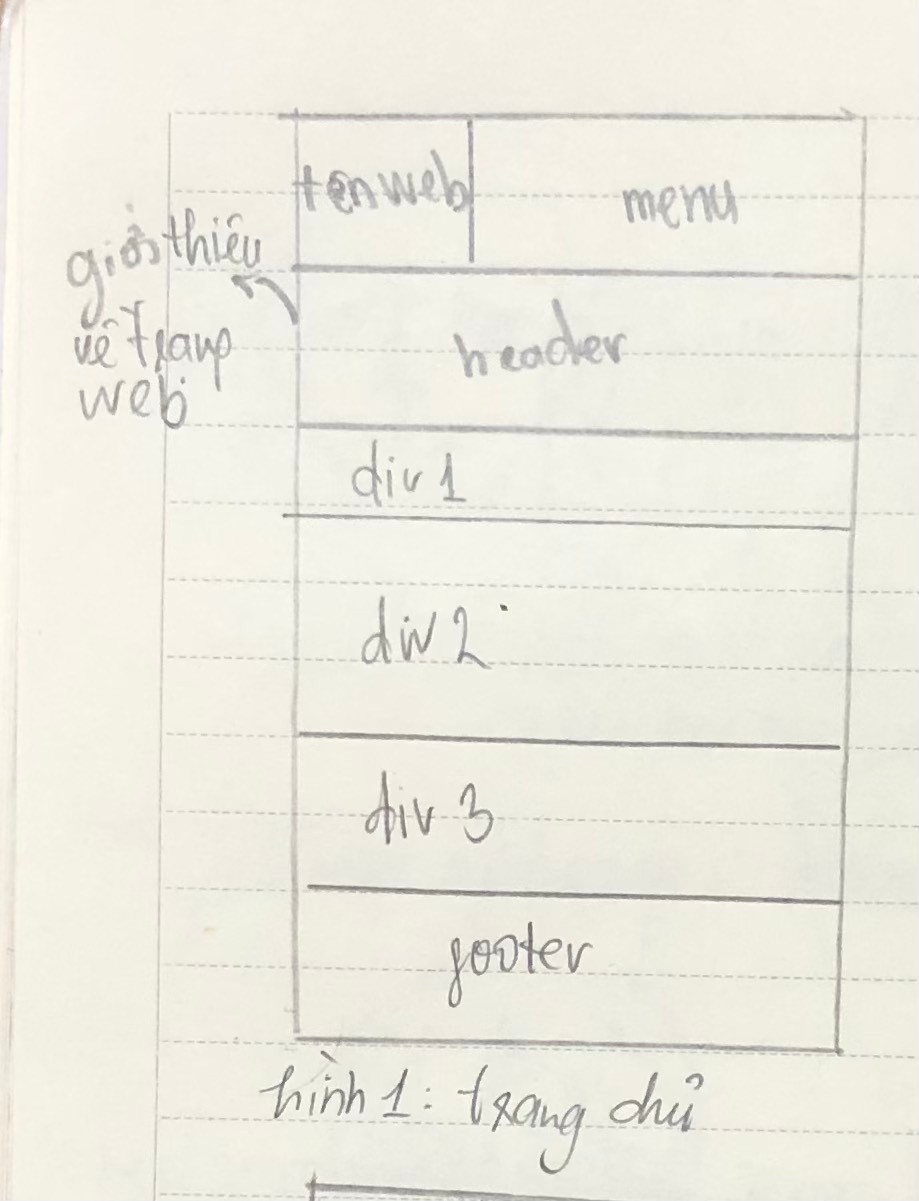 tên web
menu
giới thiệu
về trang
web
header
div 1
div 2
div 3
footer
hình 1: trang chủ